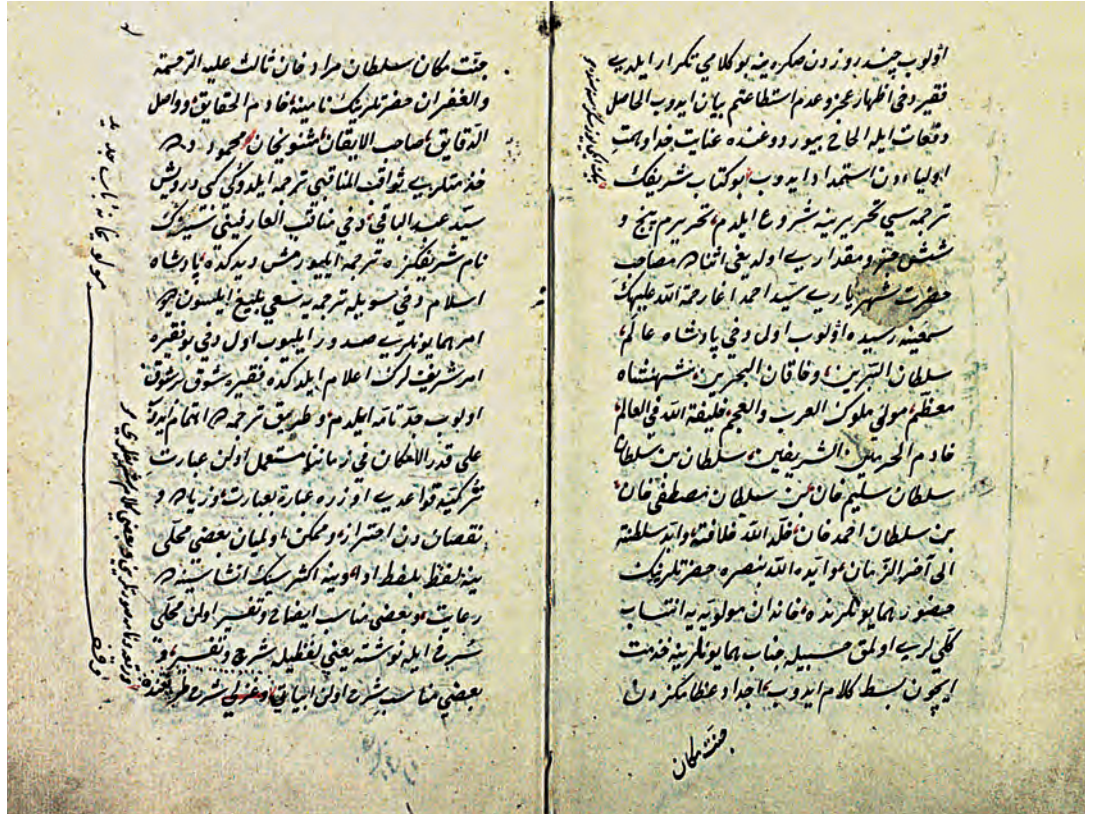 اولوب چند روزدن صكره ينه بو كلامي تكرار ايلديلر
فقير دخي اظهار عجز و عدم استطاعتم بيان ايدوب الحاصل
دفعات ايله الحاح بيوردوغنده عنايت خدا و همت
اوليادن استمداد ايدوب بو كتاب شريفك
ترجمه سي تحريرينه شروع ايلدم تحريرم پنج و
شش جزو مقداري اولديغي اثناده مصاحب
حضرت شهرياري سيد احمد اغا رحمة الله عليهك
سمعينه رسيده اولوب اول دخي پادشاه عالم
سلطان البرين و خاقان البحرين شهنشاه
معظم مولى ملوك العرب والعجم خليفة الله في العالم
خادم الحرمين الشريفين سلطان بن سلطان
سلطان سليم خان بن سلطان مصطفى خان
بن سلطان احمد خان خلد الله خلافته وابد سلطنته
الى آخر الزمان وايده الله بنصره حضرتلرينك
حضور همايونلرنده خاندان مولويه يه انتساب
كلي لري اولمق حسبيله جناب همايونلرينه خدمت
ايچون بسط كلام ايدوب اجداد عظامكزدن
جنت مكان
جنت مكان سلطان مراد خان ثالث عليه الرحمة
والغفران حضرتلرينك نامينه خادم الحقايق و واصل
الدقايق صاحب الايقان مثنويخان محمود دده
خدمتلري ثواقب المناقبي ترجمه ايلدوكي كبي درويش
سيد عبد الباقي دخي مناقب العارفيني سيزك
نام شريفكزه ترجمه ايليورمش ديدكده پادشاه
اسلام دخي سويله ترجمه يه سعي بليغ ايلسون ديو
امر همايونلري صدور ايليوب اول دخي بو فقيره
امر شريفلرك اعلام ايلدكده فقيره شوق بر شوق
اولوب جد تام ايلدم و طريق ترجمه ده اهتمام ايدوب
على قدر الامكان في زماننا مستعمل اولن عبارت
تركيه قواعدي اوزره عبارة بعبارت و زياده و
نقصاندن احتراز و ممكن اولميان بعضي محلي
ينه لفظ بلفظ ادا وينه اكثر سبك انشاسينه
رعايت و بعضي مناسب ايضاح و تفسير اولن محلي
شرح ايله نوشته يعني بتفصيل شرح و تفسير و
بعضي مناسب شرح اولن ابياتي و غزلي شرح طرزنده
وقف